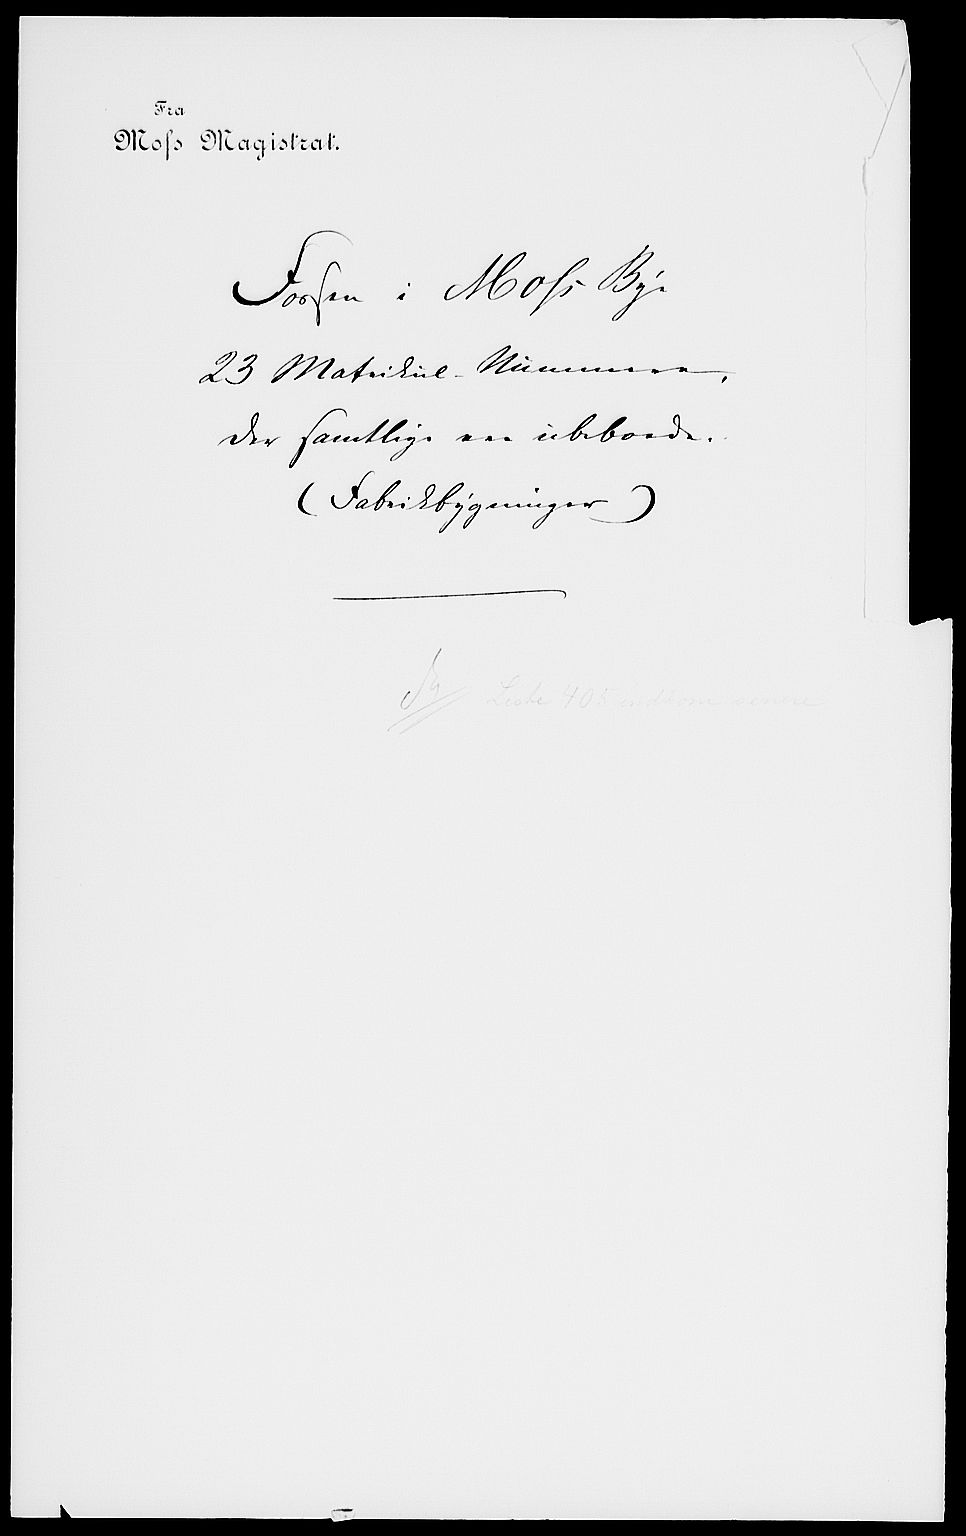 Fra
Moss Magistrat.
Fossen i Moss Bye
23 Matrikul-Nummere,
der samtlige ere ubeboede.
(Fabrikbygninger)
Liste 405 indkom senere